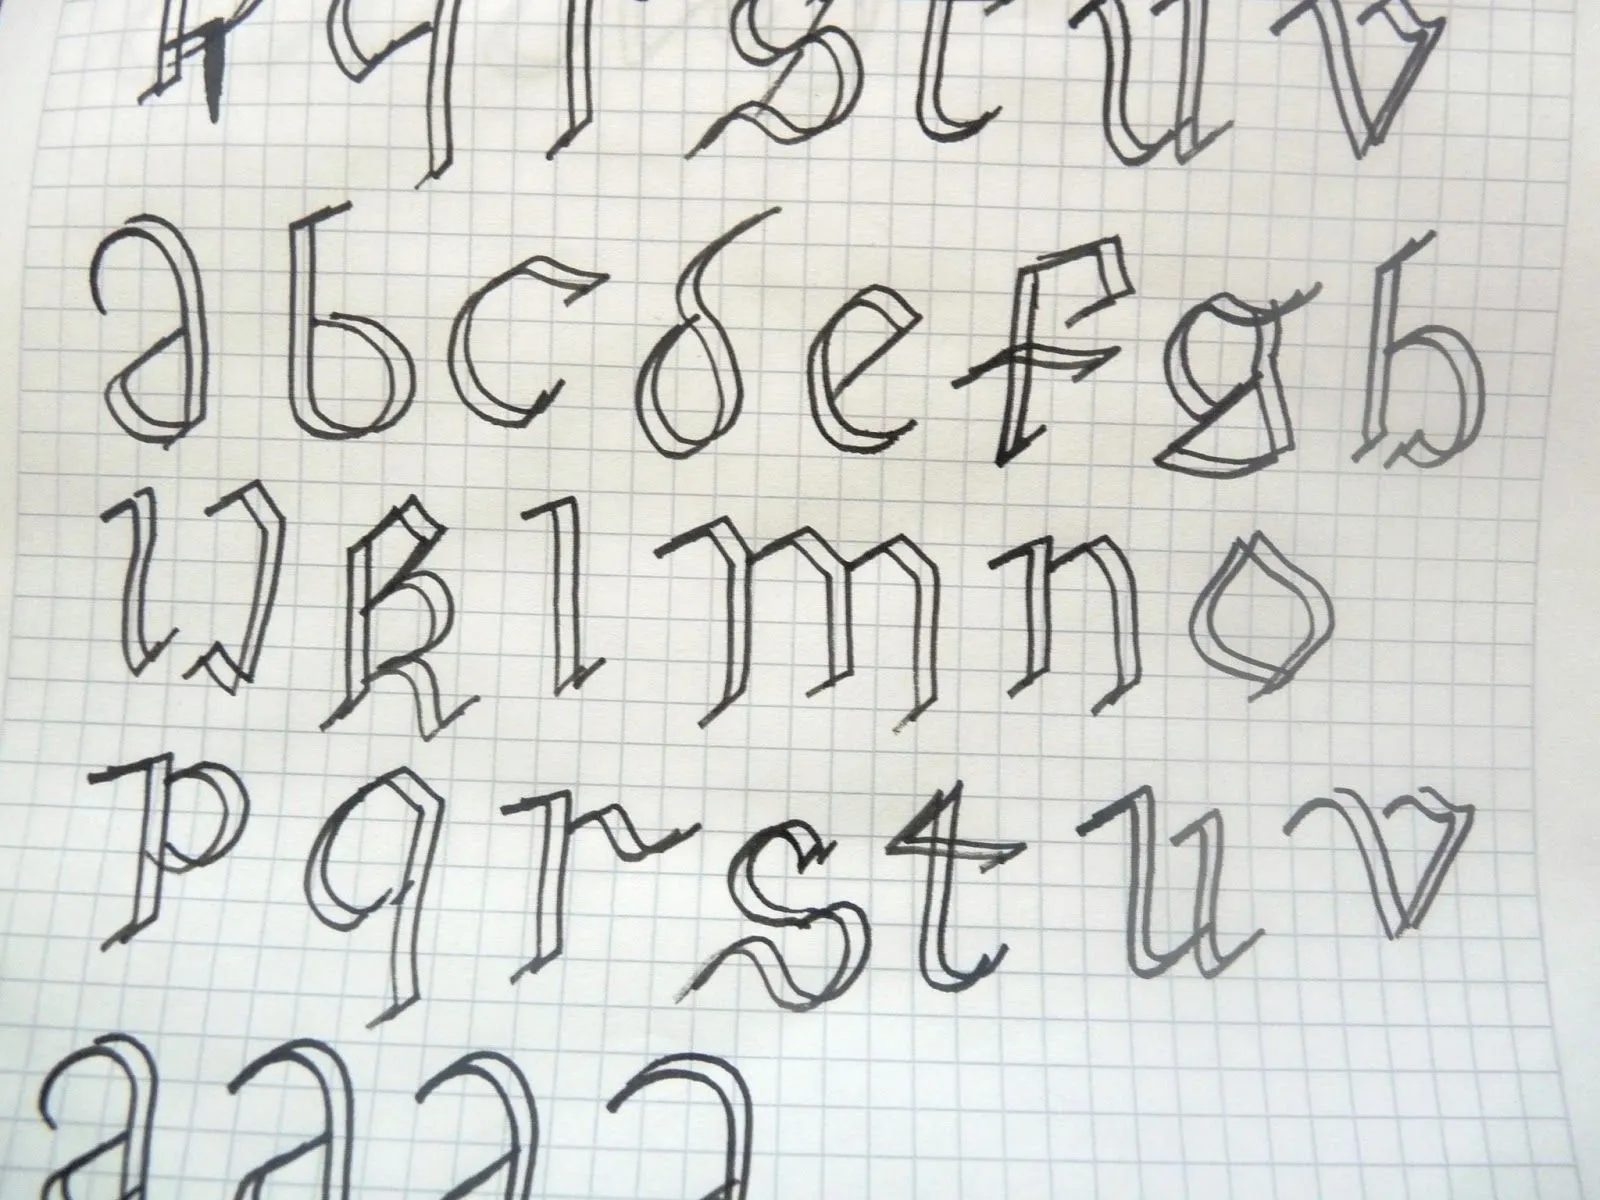 q r s t u v
a b c d e f g h
i j k l m n o
p q r s t u v
a a a a